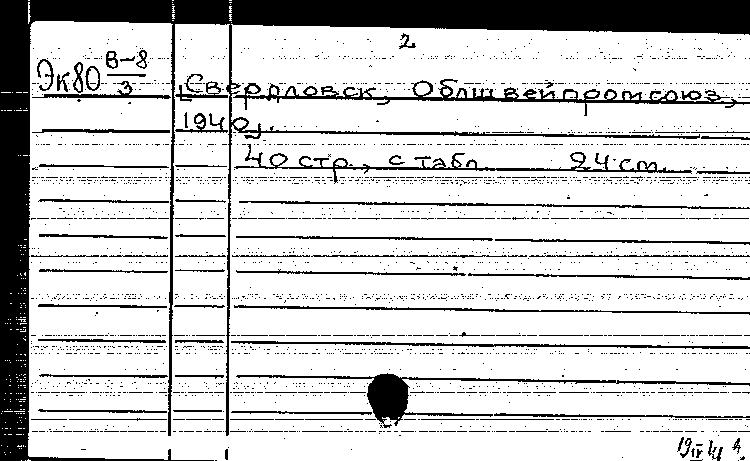 2
Эк80 В-8/3
[Свердловск, Облшвейпромсоюз,
1940].
40 стр., с табл. 24 см.